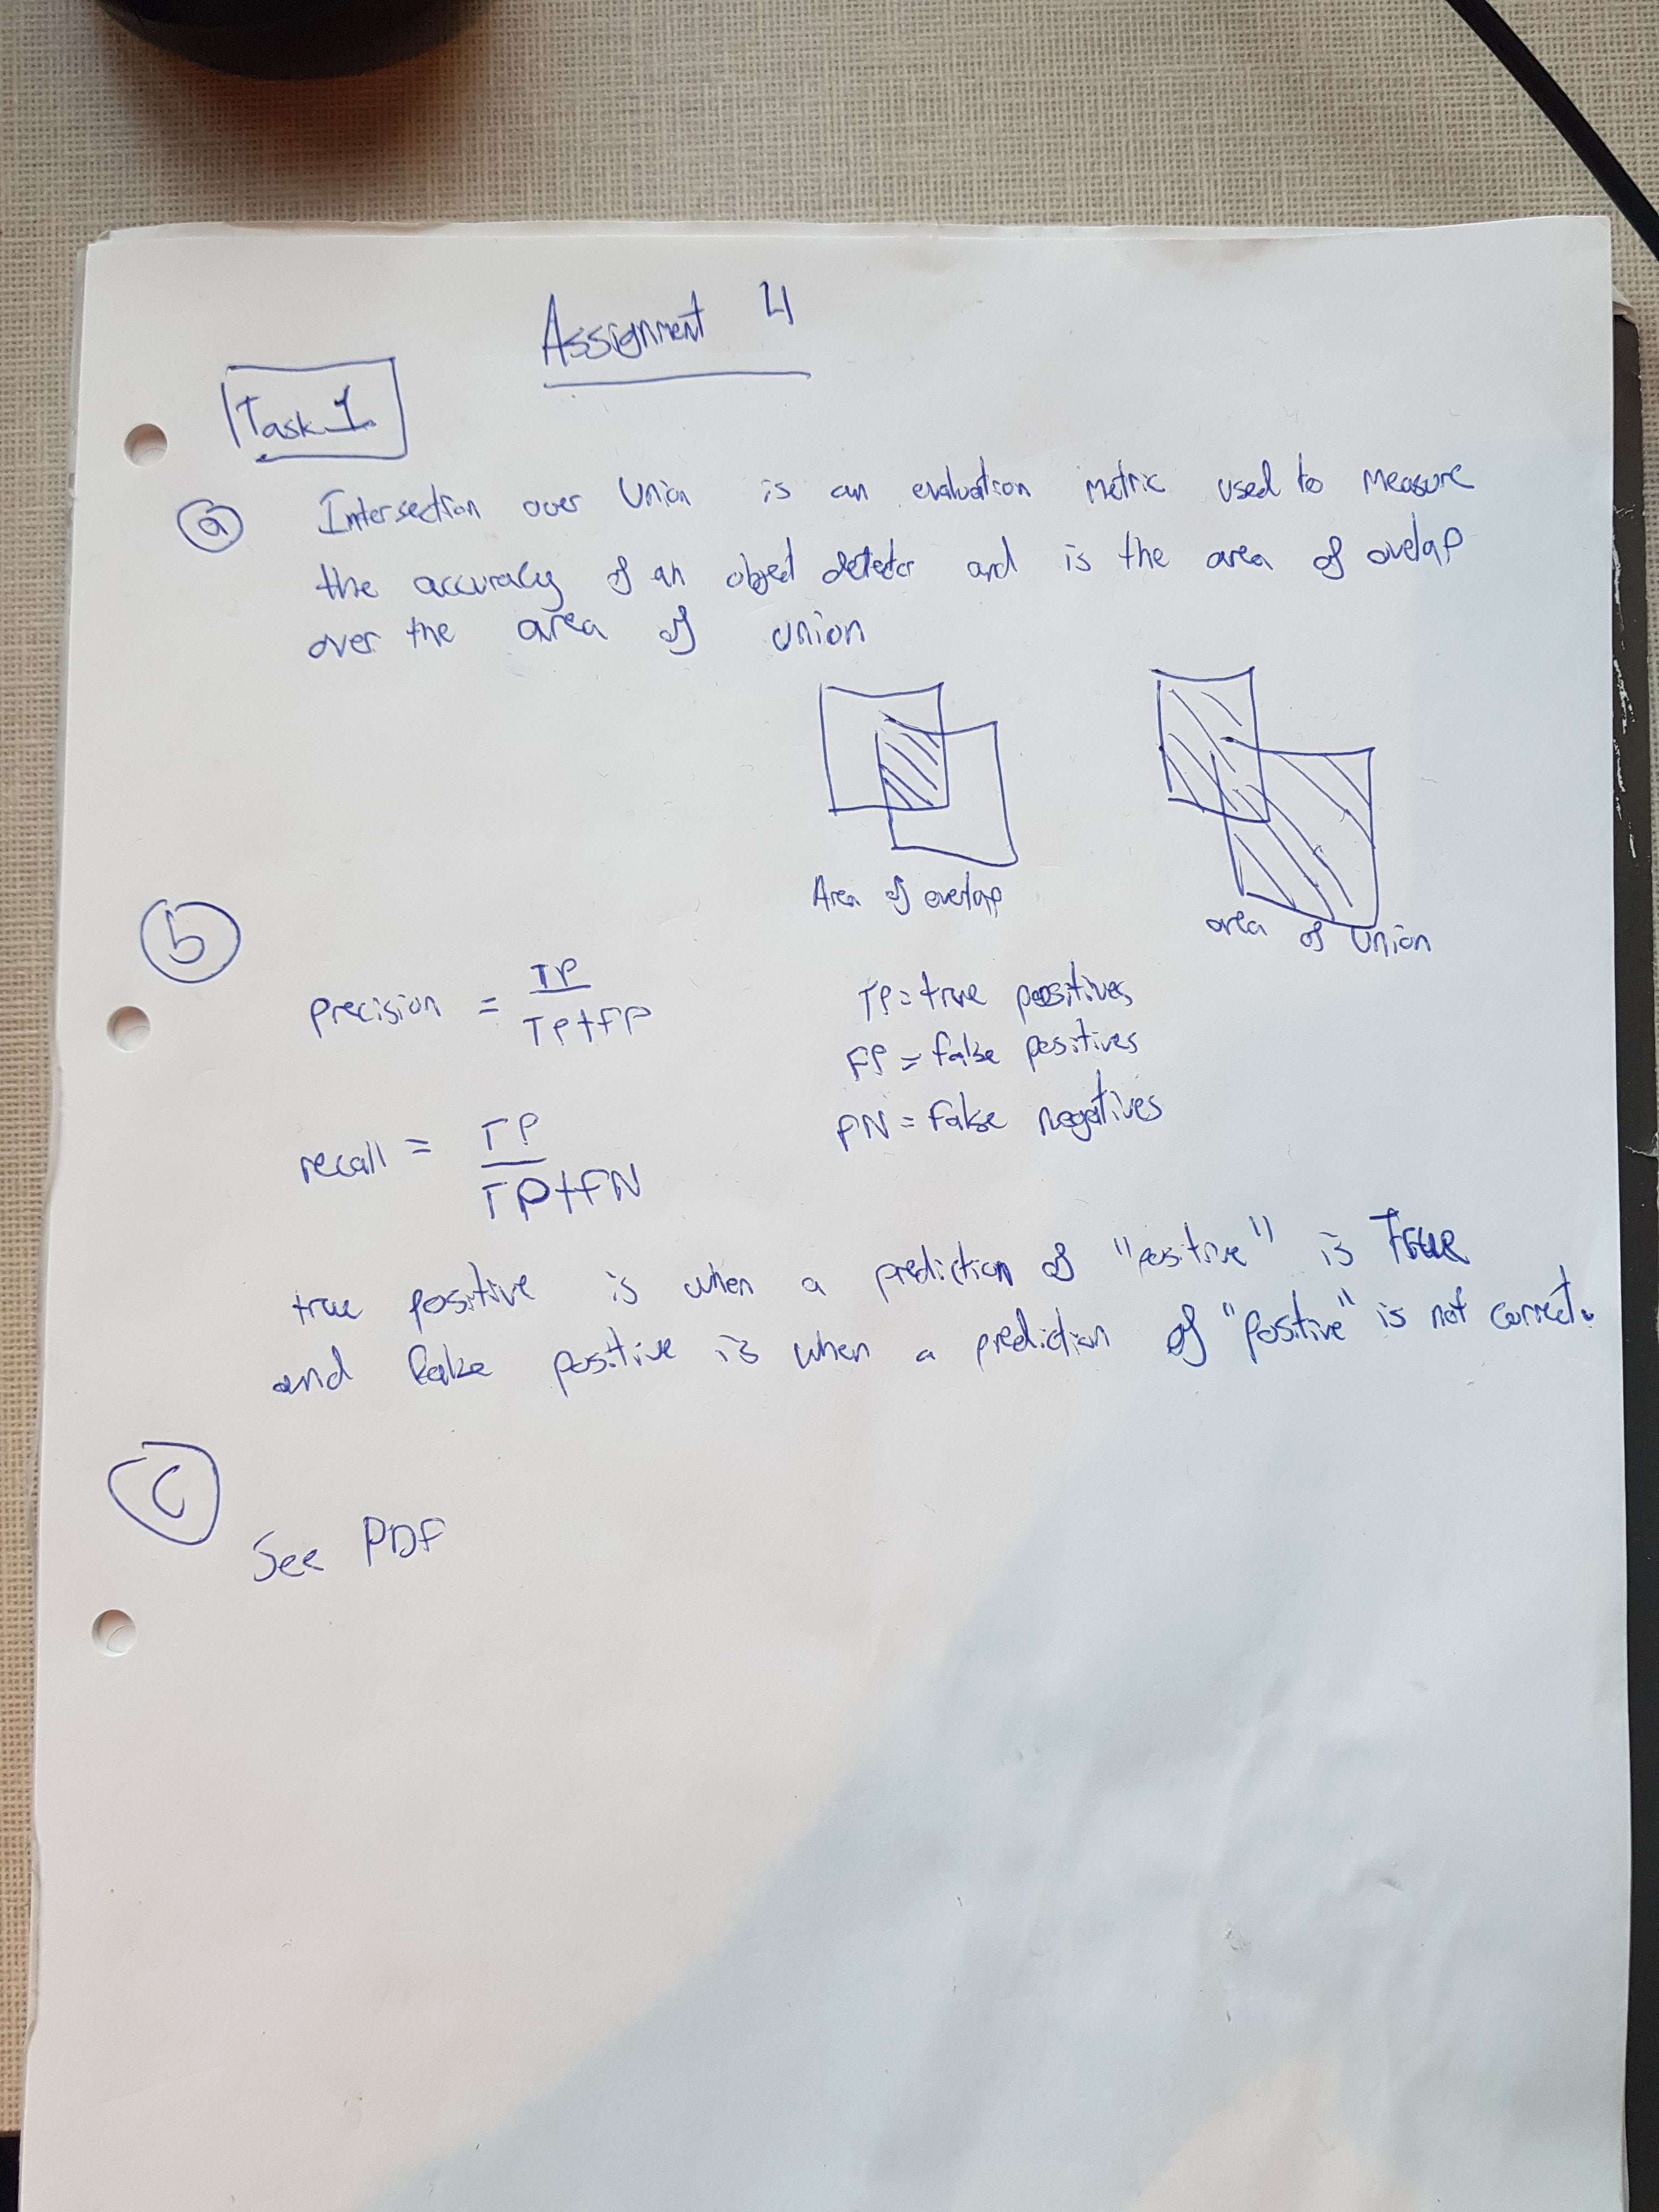 Assignment 4
Task 1
a Intersection over Union is an evaluation metric used to measure
the accuracy of an object detector and is the area of overlap
over the area of union
Area of overlap
area of Union
b
precision = TP / TP+FP
TP = true positives
FP = false positives
recall = TP / TP+FN
FN = false negatives
true positive is when a prediction of "positive" is True
and false positive is when a prediction of "positive" is not correct.
c
See PDF